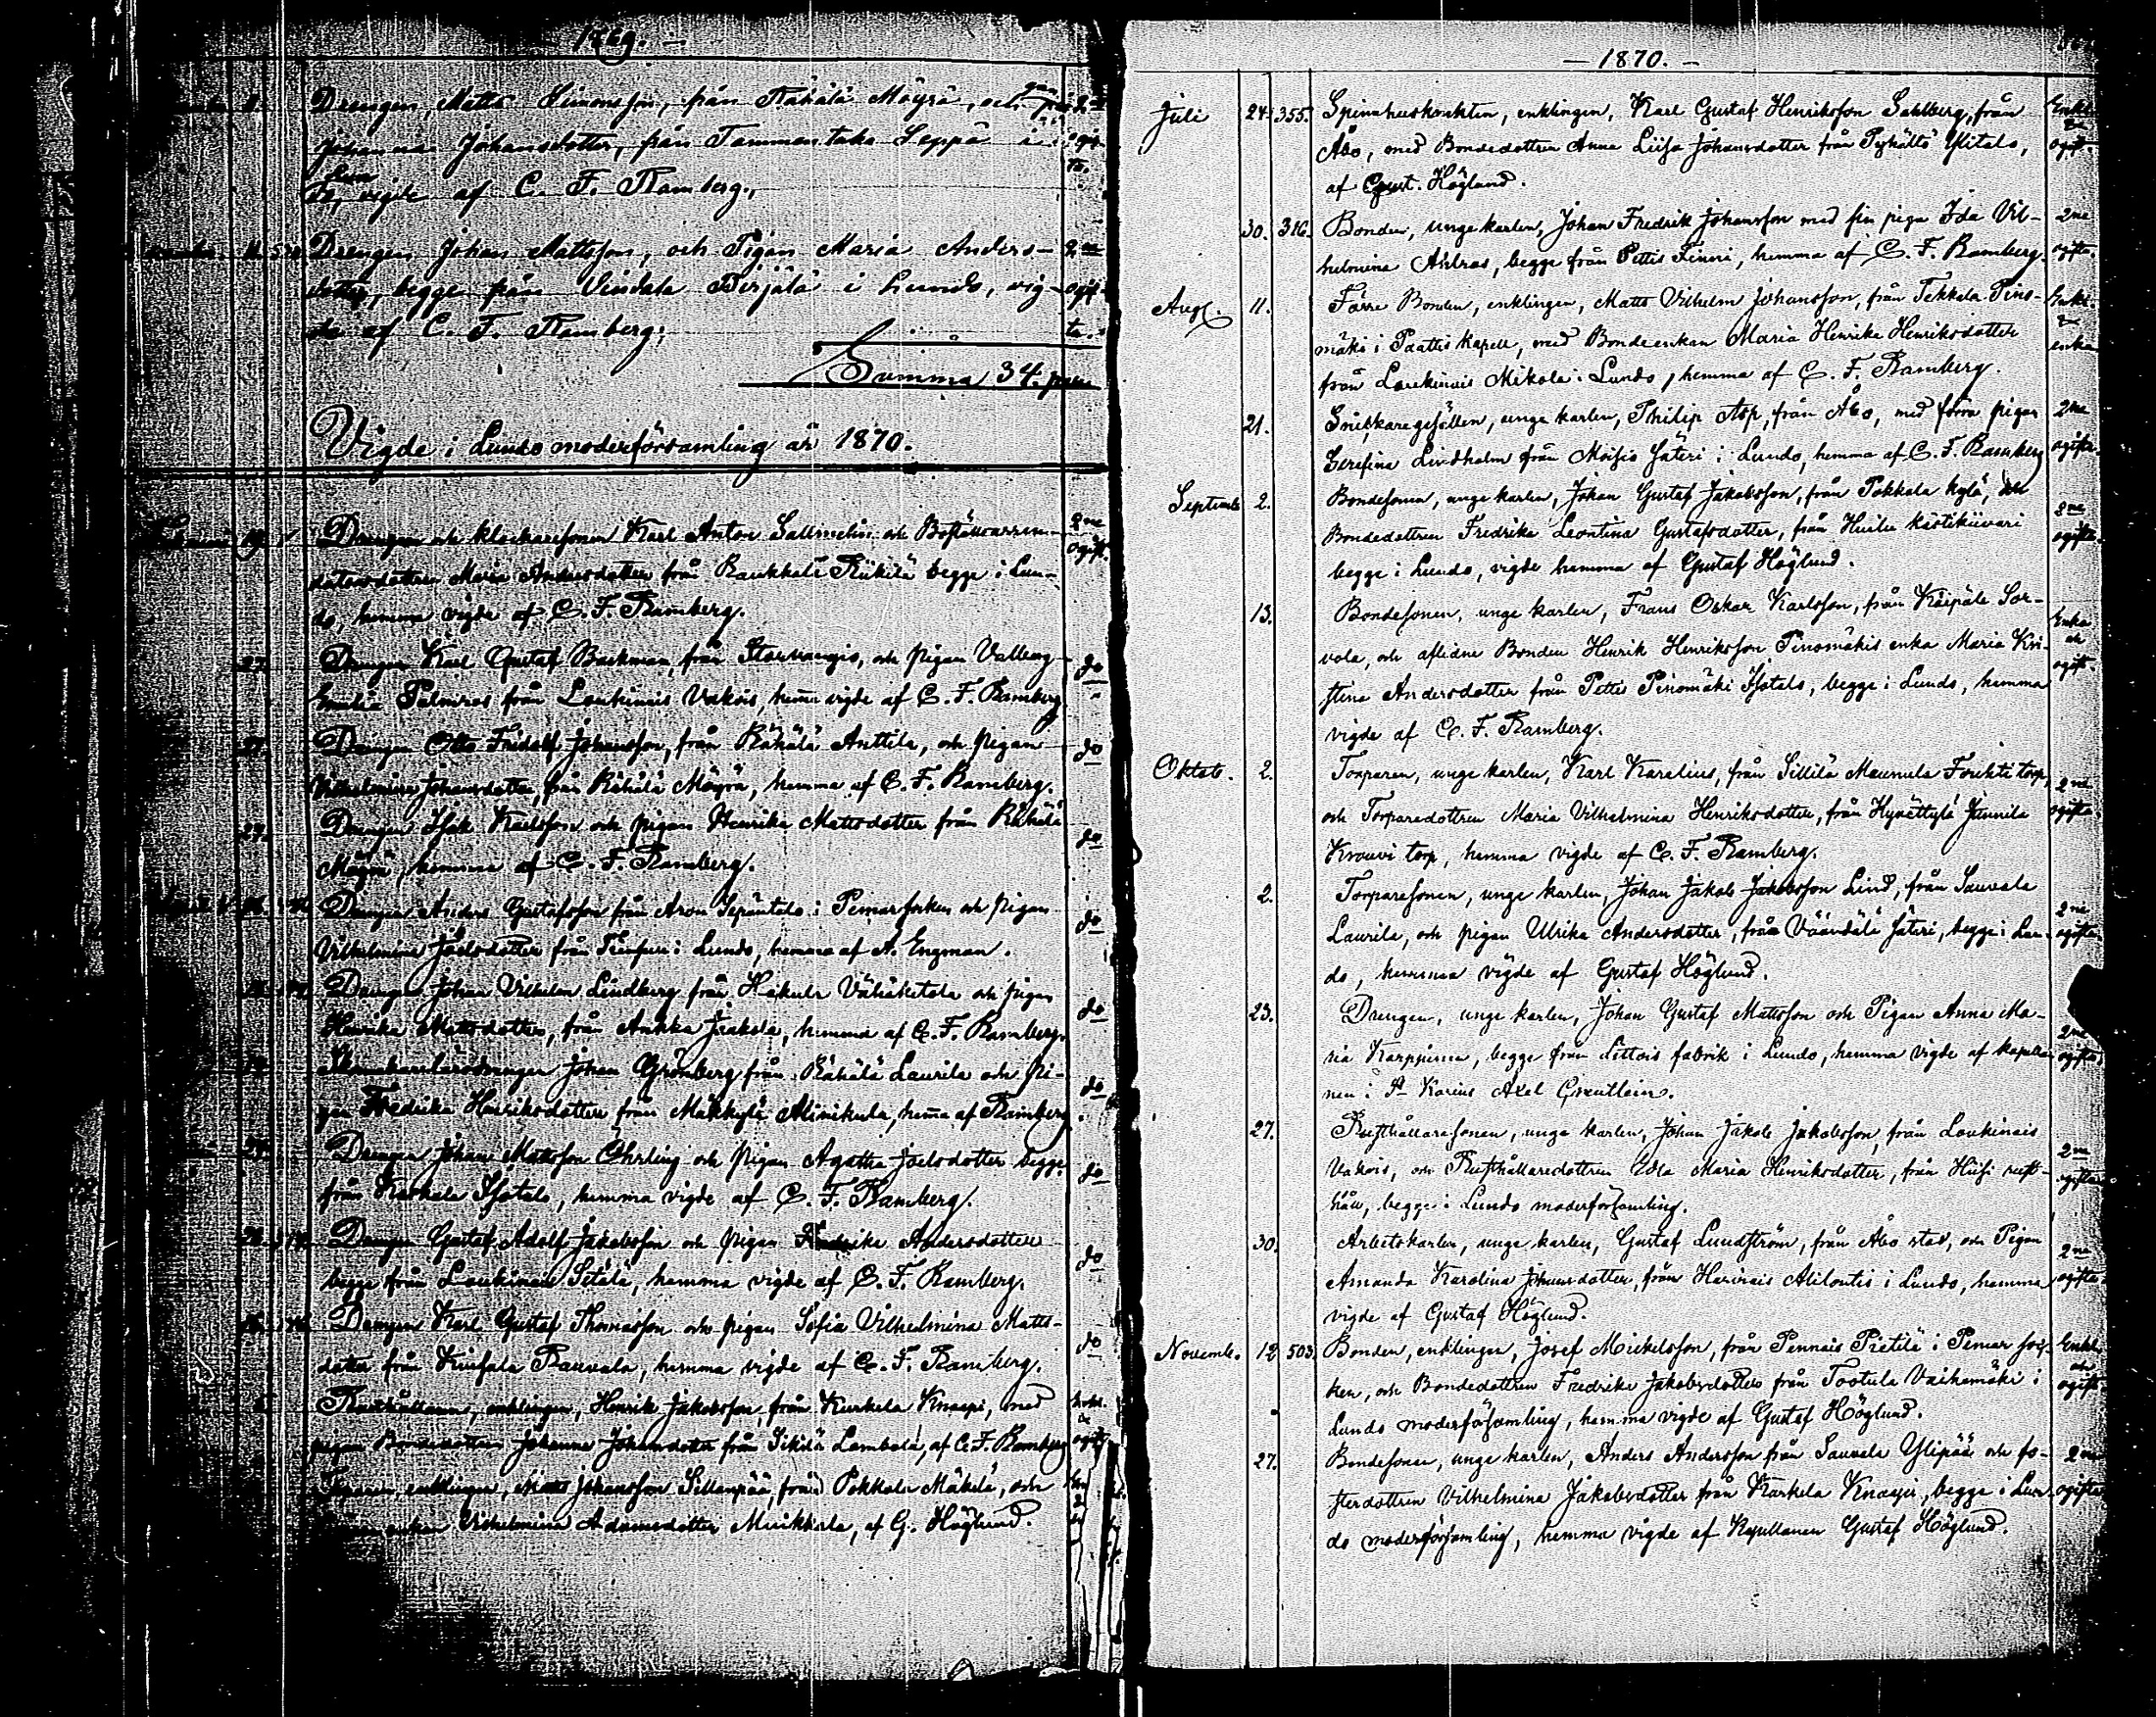 1869. —
Drengen, Matts Simonsson, från Rähälä Mäyrä, och pi-
gan
Johanna Johansdotter, från Tammentaka Seppä i
Lun
do, vigde af C. F. Ramberg,
2ne
ogif-
ta.
Drengen Johan Mattsson, och Pigan Maria Anders-
dotter, begge från Vindala Pirjälä i Lundo, vig-
de af C. F. Ramberg;
2ne
ogif-
ta.
Summa 34. paar
Vigde i Lundo moderförsamling år 1870.
Drengen och klockaresonen Karl Anton Sallmelin och
datorsdottren Maria Andersdotter från Raukkala Riikilä begge i Lun-
do, hemma vigde af C. F. Ramberg.
2ne
ogift.
27. Drengen Karl Gustaf Backman, från och pigan Valborg
Emilia Palmros från Loukinais Vakois, hemma vigde af C. F. Ramberg
do
27. Drengen Otto Fridolf Johansson, från Rähälä Anttila, och pigan
Vilhelmina Johansdotter, från Rähälä Mäyrä, hemma af C. F. Ramberg.
do
27. Drengen Isak Karlsson och pigan Henrika Mattsdotter från Rähälä
Mäyrä, hemma af C. F. Ramberg.
do
Drengen Anders Gustafsson från Aron i Pemar socken och pigan
Vilhelmina Joelsdotter från i Lundo, hemma af A. Engman.
do
Drengen Johan Vilhelm Lindberg från Hakula Vähäkitala och pigan
Henrika Mattsdotter, från Ankka Jaakola, hemma af C. F. Ramberg.
do
Johan Grönberg från Rähälä Laurila och pi-
gan Fredrika Henriksdotter från Mäkkylä Alinikula, hemma af Ramberg.
do
Drengen Johan Mattsson Öhrling och pigan Agatha Joelsdotter begge
från Karkala Isotalo, hemma vigde af C. F. Ramberg.
do
Drengen Gustaf Adolf Jakobsson och pigan Fredrika Andersdotter
begge från Loukinais Setälä, hemma vigde af C. F. Ramberg.
do
Drengen Karl Gustaf Thomasson och pigan Sofia Vilhelmina Matts-
dotter från Rauvala, hemma vigde af C. F. Ramberg.
do
Rusthållaren, enklingen, Henrik Jakobsson, från Kurkela Knaapi, med
pigan Bondedottren Johanna Johansdotter från Sikilä Lambola, af C. F. Ramberg
enklingen, Matts Johansson Sillanpää, från Pokkola Mäkelä, och
enkan Vilhelmina Adamsdotter Muikkala, af G. Höglund.
— 1870. —
Juli 24. 355. Spinnhusknekten, enklingen, Karl Gustaf Henriksson Sahlberg, från
Åbo, med Bondedottren Anna Liisa Johansdotter från Pyhältö Ylitalo,
af Gust. Höglund.
Enkl.
&
ogift.
30. 316. Bonden, unge karlen, Johan Fredrik Johansson med sin piga Ida Vil-
helmina Ahlros, begge från Pettis Finni, hemma af C. F. Ramberg.
2ne
ogifta.
Aug. 11. Förre Bonden, enklingen, Matts Vilhelm Johansson, från Tekkala Pino-
mäki i Paattis kapell, med Bondeenkan Maria Henrika Henriksdotter
från Loukinais Mikola i Lundo, hemma af C. F. Ramberg.
Enkl.
&
enka
21. Snickaregesällen, unge karlen, Philip Asp, från Åbo, med förra pigan
Serafina Lindholm från Moisio Säteri i Lundo, hemma af C. F. Ramberg
2ne
ogifta.
Septemb. 2. Bondesonen, unge karlen, Johan Gustaf Jakobsson, från Pokkola kylä, och
Bondedottren Fredrika Leontina Gustafsdotter, från
begge i Lundo, vigde hemma af Gustaf Höglund.
2ne
ogifta.
13. Bondesonen, unge karlen, Frans Oskar Karlsson, från Käipälä Sor-
vola, och aflidne Bonden Henrik Henriksson Pinomäkis enka Maria Kri-
stina Andersdotter från Pettis Pinomäki Isotalo, begge i Lundo, hemma
vigde af C. F. Ramberg.
Enka
och
ogift.
Oktob. 2. Torparen, unge karlen, Karl Karelius, från Sillilä Maunula torp,
och Torparedottren Maria Vilhelmina Henriksdotter, från Junnila
Krouvi torp, hemma vigde af C. F. Ramberg.
2ne
ogifta.
2. Torparesonen, unge karlen, Johan Jakob Jakobsson Lind, från Sauvala
Laurila, och pigan Ulrika Andersdotter, från Väändälä Säteri, begge i Lun-
do, hemma vigde af Gustaf Höglund.
2ne
ogifta
23. Drengen, unge karlen, Johan Gustaf Mattsson och Pigan Anna Ma-
ria Karppinen, begge från Littois fabrik i Lundo, hemma vigde af kapella-
nen i St Karins Axel
2ne
ogifta.
27. Rusthållaresonen, unge karlen, Johan Jakob Jakobsson, från Loukinais
Vakois, och Rusthållaredottren Edla Maria Henriksdotter, från Hiisi rust-
håll, begge i Lundo moderförsamling.
2ne
ogifta
30. Arbetskarlen, unge karlen, Gustaf Lundström, från Åbo stad, och Pigan
Amanda Karolina Johansdotter, från Harvais Alilontis i Lundo, hemma
vigde af Gustaf Höglund.
2ne
ogifta.
Novemb. 12 503. Bonden, enklingen, Josef Mickelsson, från Pennais Pietilä i Pemar soc-
ken, och Bondedottren Fredrika Jakobsdotter från Tootula Vaihemäki i
Lundo moderförsamling, hemma vigde af Gustaf Höglund.
Enkl.
och
ogift
27. Bondesonen, unge karlen, Anders Andersson från Sauvala Ylipää och fo-
sterdottren Vilhelmina Jakobsdotter från Kurkela Knaapi, begge i Lun-
do moderförsamling, hemma vigde af Kapellanen Gustaf Höglund.
2ne
ogifta